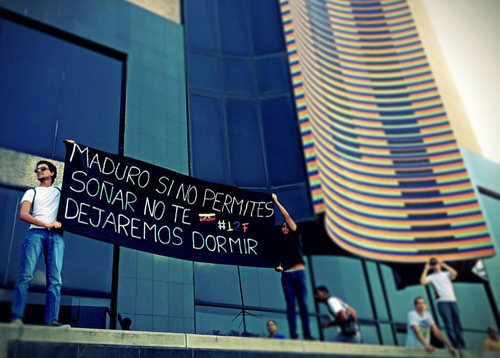 MADURO SI NO PERMITES
SOÑAR NO TE #12F
DEJAREMOS DORMIR